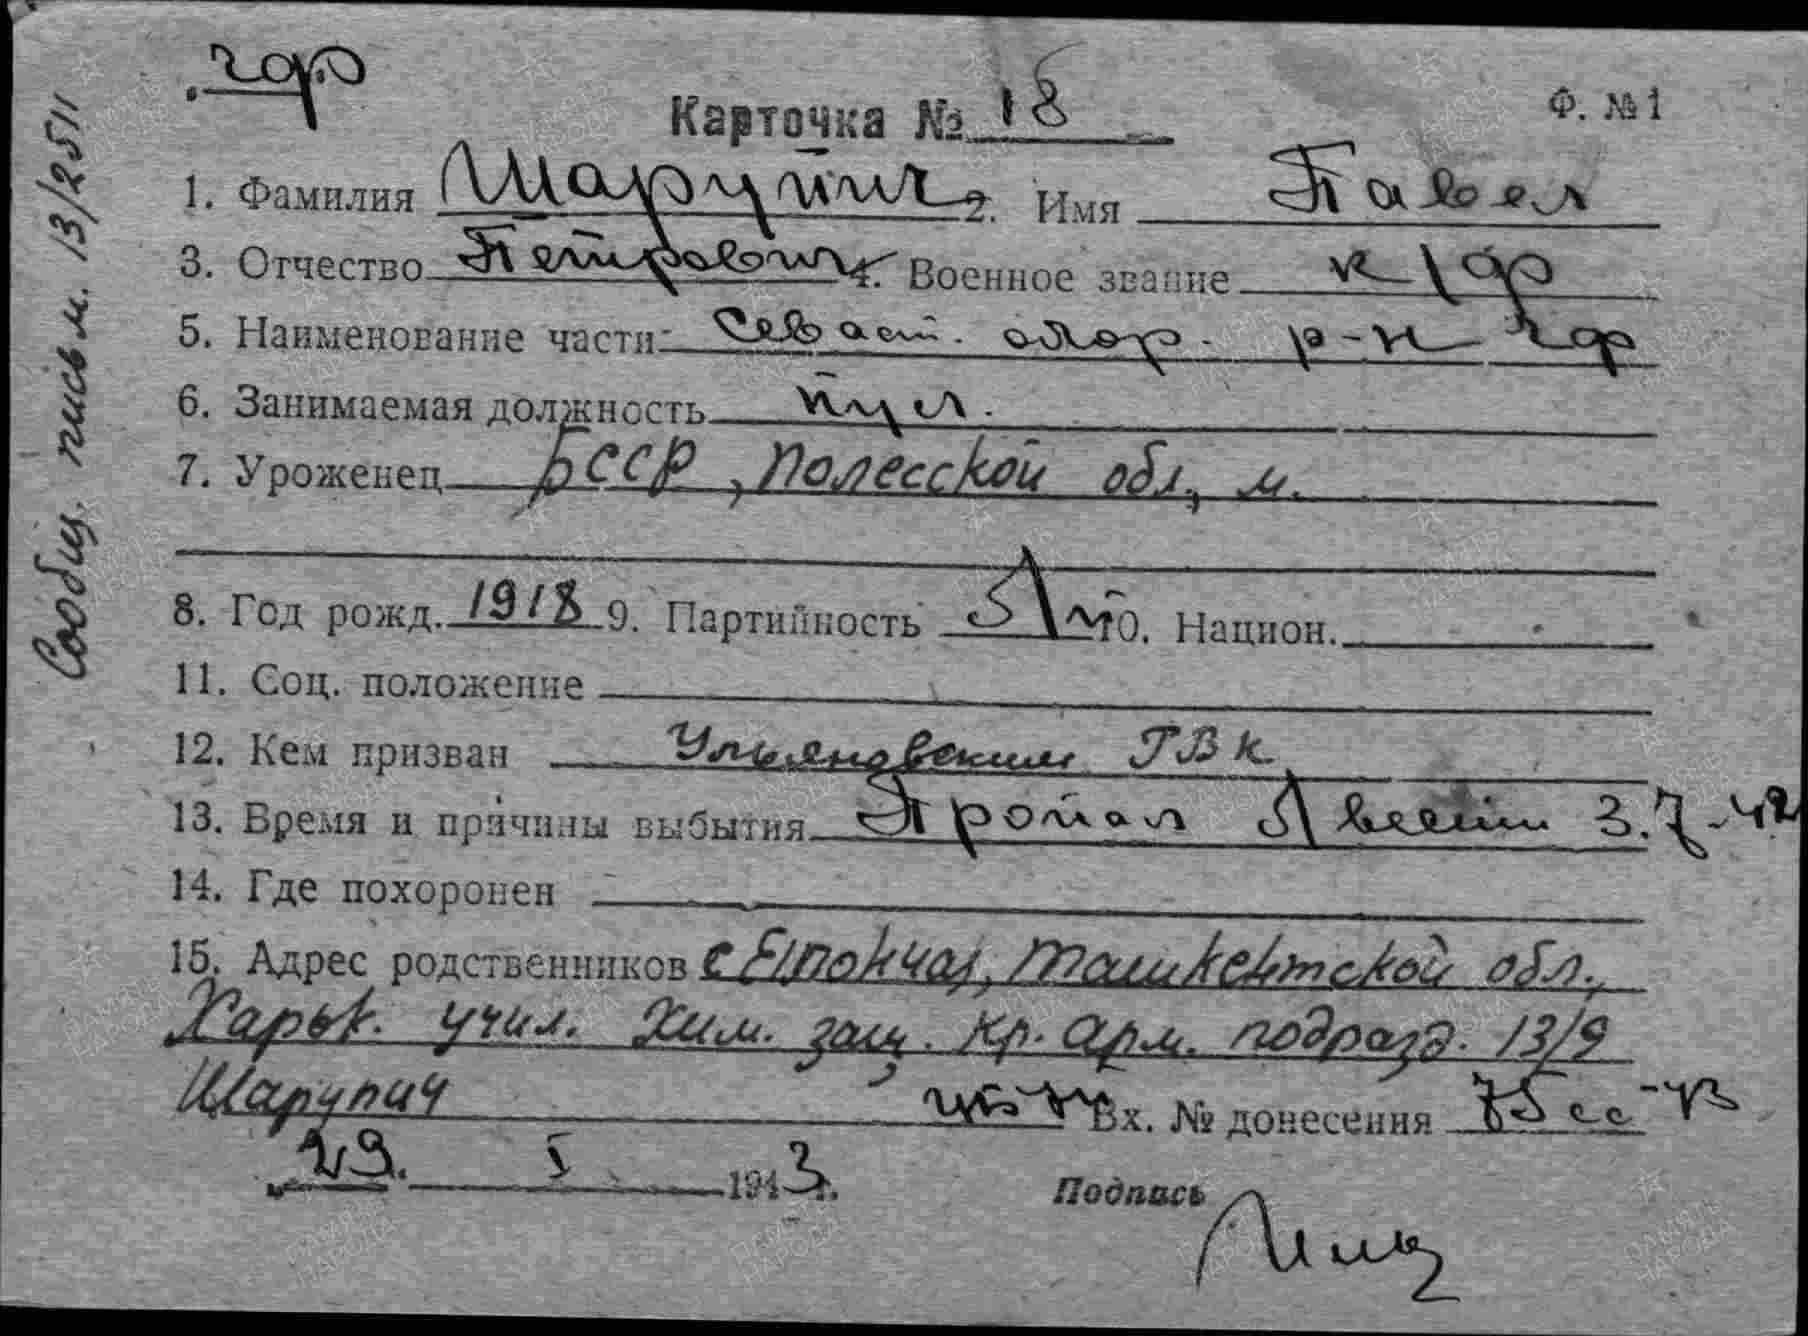 чф
Карточка № 18
Ф. № 1
1. Фамилия Шарупич 2. Имя Павел
3. Отчество Петрович 4. Военное звание к/ф
5. Наименование части Севаст. обор. р-н чф
6. Занимаемая должность пул.
7. Уроженец БССР, Полесской обл., м.
8. Год рожд. 1918 9. Партийность 10. Национ.
11. Соц. положение
12. Кем призван Ульяновским РВК
13. Время и причины выбытия Пропал Без вести 3.7.42
14. Где похоронен
15. Адрес родственников Ташкентской обл.,
Харьк. учил. Хим. защ. Кр. Арм. подразд. 13/9
Шарупич Вх. № донесения 75сс-43
29. I 1943 г.
Подпись
Сообщ. письм. 13/2511
ПАМЯТЬ НАРОДА